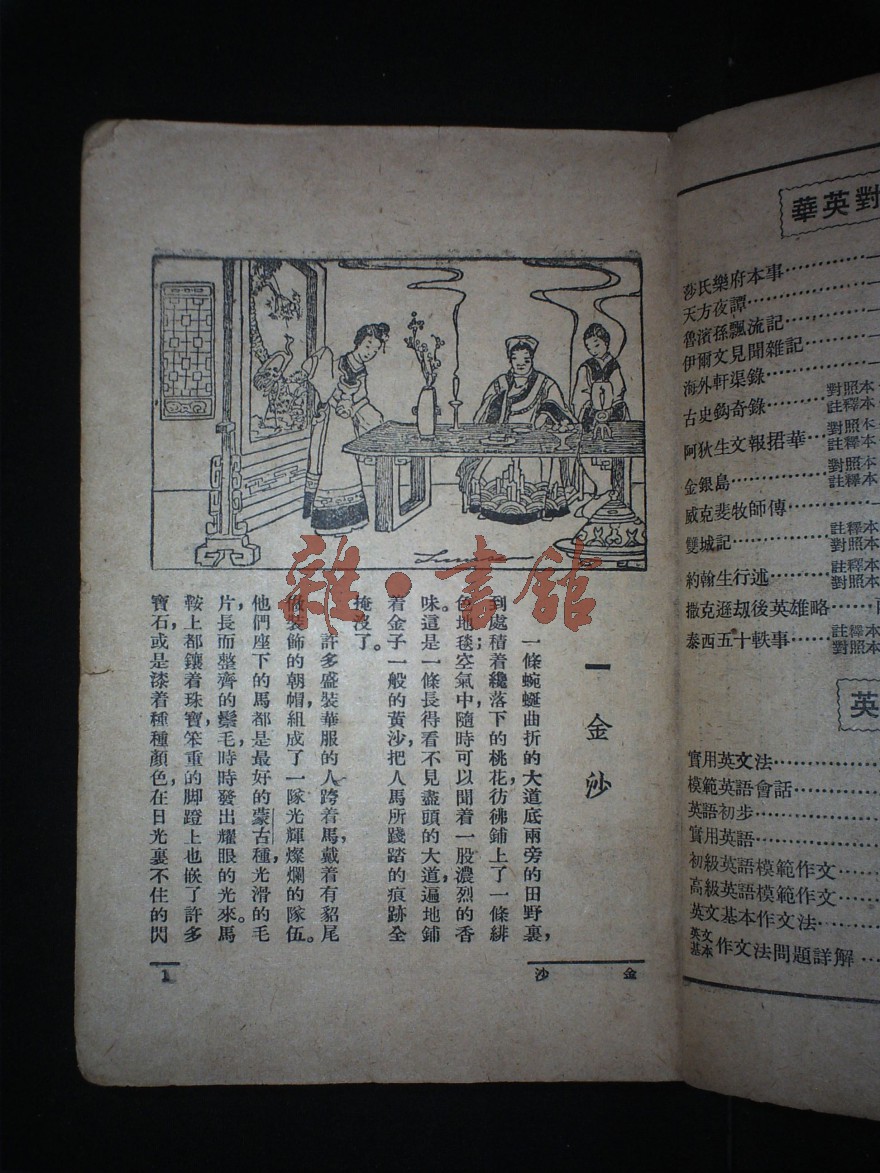 一 金沙
一條蜿蜒曲折的大道底兩旁的田野裏，
到處積着纔落下的桃花，彷彿鋪上了一條緋
色地毯；空氣中，隨時可以聞着一股濃烈的香
味。這是一條長得看不見盡頭的大道，遍地鋪
着金子一般的黃沙，把人馬所踐踏的痕跡全
掩沒了。
許多盛裝華服的人，跨着馬，戴着有貂尾
做裝飾的朝帽，組成了一隊光輝燦爛的隊伍。
他們座下的馬都是最好的蒙古種，光滑的毛
片，長而整齊的鬃毛，時時發出耀眼的光來。馬
鞍上都鑲着珠寶，笨重的脚蹬上也嵌了許多
寶石，或是漆着種種顏色，在日光裏不住的閃
金沙
1
雜·書館
華英對
莎氏樂府本事
天方夜譚
魯濱孫飄流記
伊爾文見聞雜記
海外軒渠錄
古史鈎奇錄 對照本 註釋本
阿狄生文報捃華 對照本 註釋本
金銀島 對照本 註釋本
威克斐牧師傳
雙城記 註釋本 對照本
約翰生行述 註釋本 對照本
撒克遜刼後英雄略
泰西五十軼事 註釋本 對照本
英
實用英文法
模範英語會話
英語初步
實用英語
初級英語模範作文
高級英語模範作文
英文基本作文法
英文基本作文法問題詳解